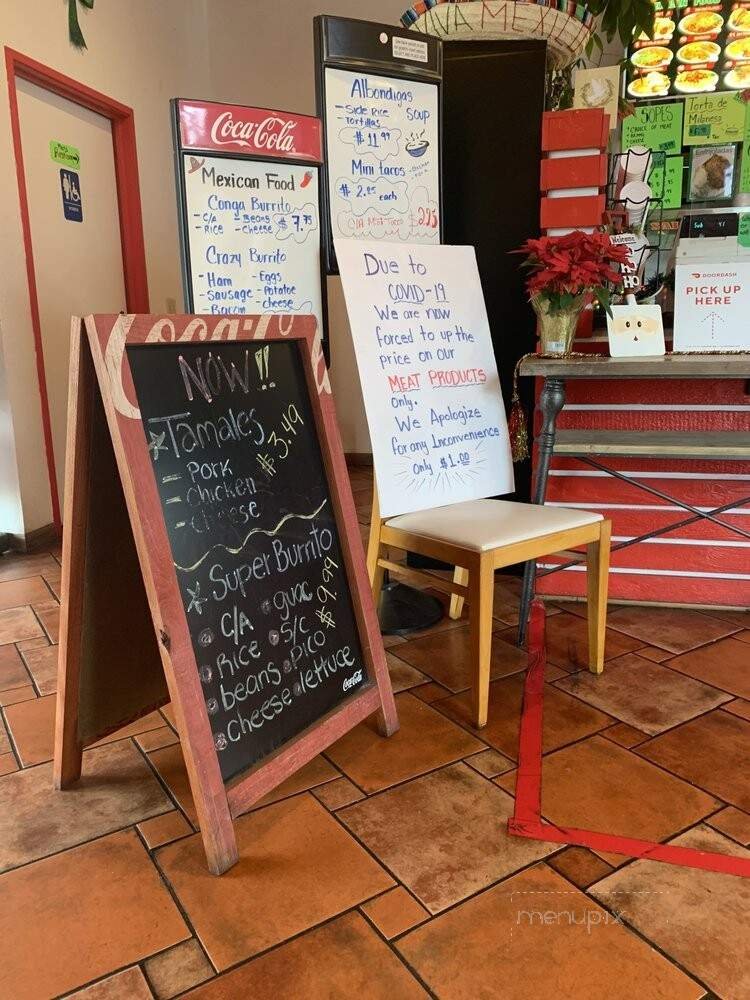 VIVA MEXICO
Albondigas
- Side Rice Soup
- Tortillas
$ 11.99
Mini tacos
$ 2.25 each
Coca-Cola
Mexican Food
Conga Burrito
- C/A - Beans
- Rice - Cheese
$ 7.75
Crazy Burrito
- Ham - Eggs
- Sausage - Potatoe
- Bacon - cheese
Due to
COVID-19
We are now
forced to up the
price on our
MEAT PRODUCTS
only.
We Apologize
for any Inconvenience
only $1.00
NOW!!
Tamales
- Pork
- Chicken
- cheese
$3.49
Super Burrito
C/A guac
Rice S/C
beans Pico
cheese lettuce
$9.99
Coca-Cola
SOPES
Torta de
Milanesa
Welcome
HO
HO
DOORDASH
PICK UP
HERE
menupix